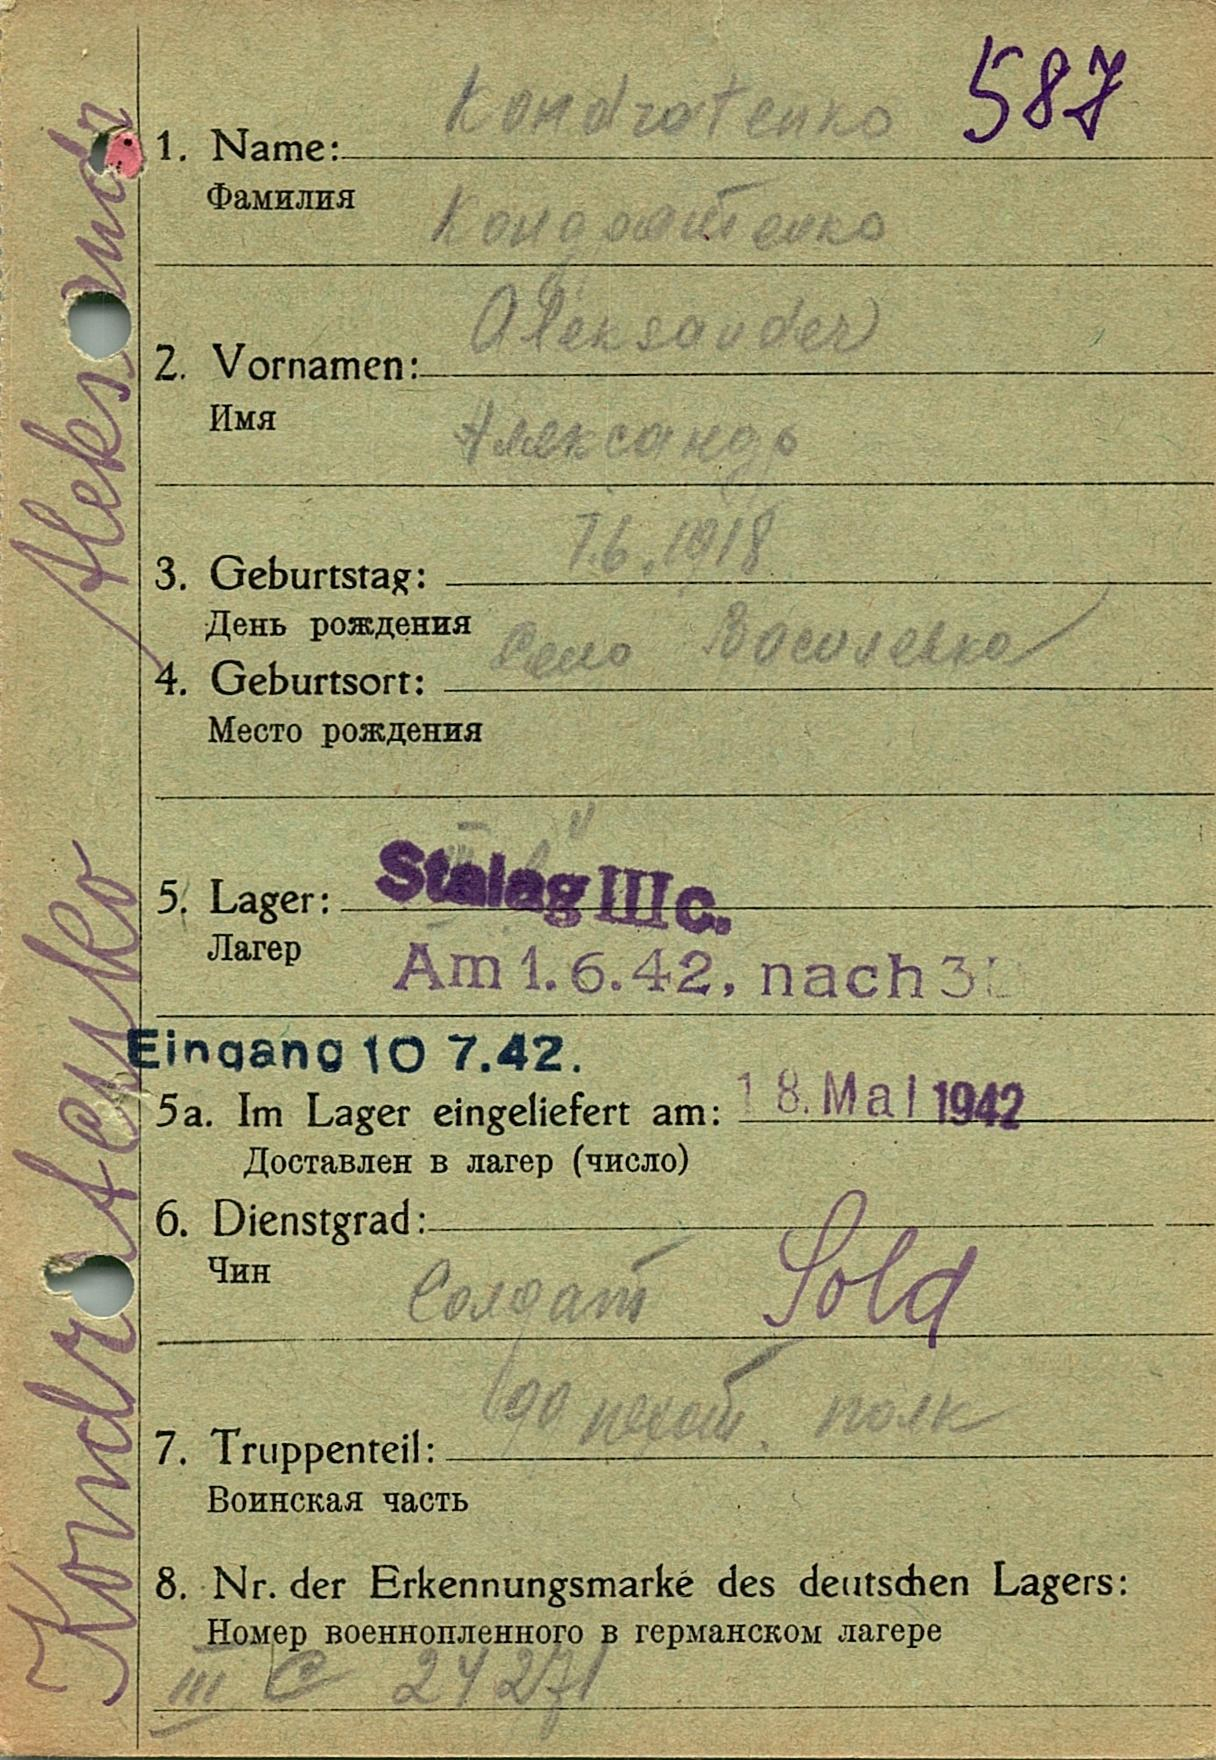 587
Kondratenko
1. Name:
Фамилия
Кондратенко
Aleksander
2. Vornamen:
Имя
Александр
7.6.1918
3. Geburtstag:
День рождения
Село
4. Geburtsort:
Место рождения
Stalag III c.
5. Lager:
Лагер
Am 1.6.42, nach 3
Eingang 10 7.42.
5a. Im Lager eingeliefert am: 18. Mai 1942
Доставлен в лагер (число)
6. Dienstgrad:
Чин
Солдат Sold
90 пехот. полк
7. Truppenteil:
Воинская часть
8. Nr. der Erkennungsmarke des deutschen Lagers:
Номер военнопленного в германском лагере
III C 24271
Aleksandr